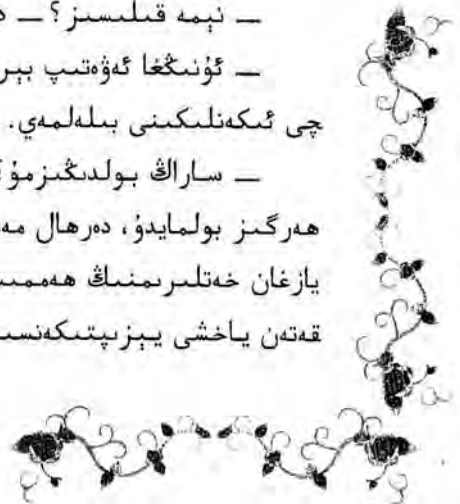 — نېمە قىلىسىز؟ —
— ئۇنىڭغا ئەۋەتىپ بېر
چى ئىكەنلىكىنى بىلەلمەي.
— ساراڭ بولدىڭىزمۇ؟
ھەرگىز بولمايدۇ، دەرھال مە
يازغان خەتلىرىمنىڭ ھەممىس
قەتەن ياخشى يېزىپتىكەنسى